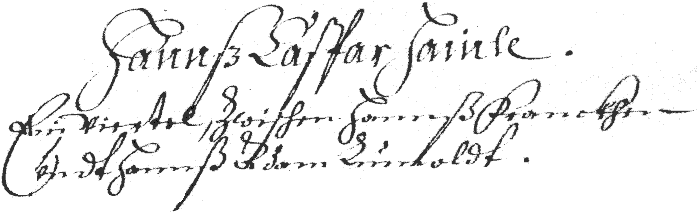 Hannß Caspar Hainle.
Ein viertel, Zwischen Hannß Franckhen
Vndt Hannß Adam Lünoldt.